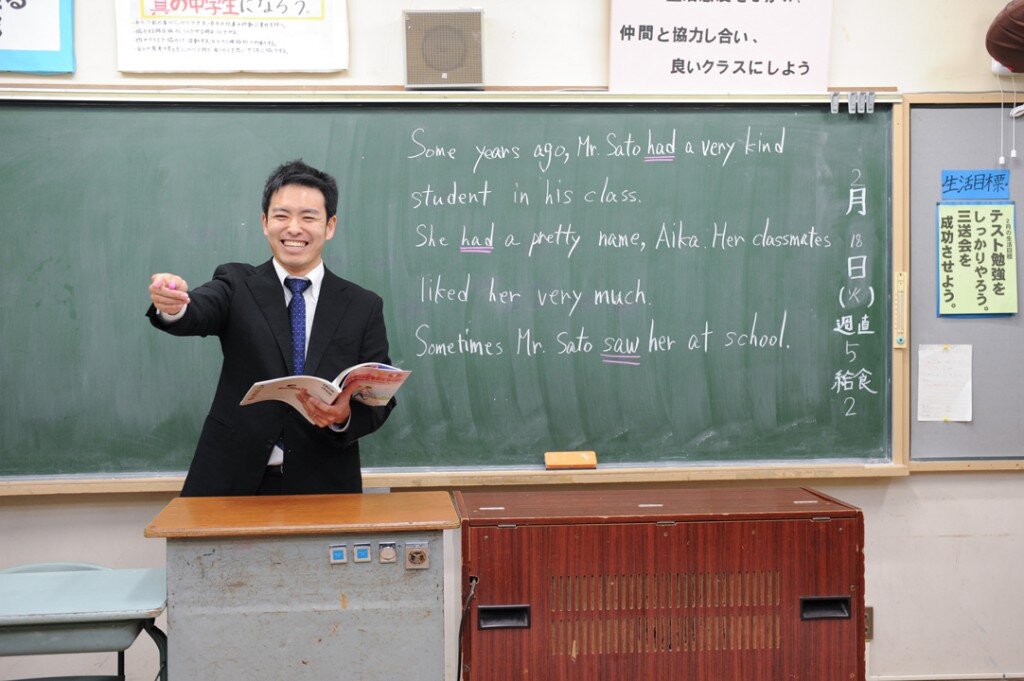 真の中学生になろう。
仲間と協力し合い、
良いクラスにしよう
Some years ago, Mr. Sato had a very kind
student in his class.
She had a pretty name, Aika. Her classmates
liked her very much.
Sometimes Mr. Sato saw her at school.
2月18日(火)週直5給食2
生活目標
2月の生活目標
テスト勉強を
しっかりやろう。
三送会を
成功させよう。